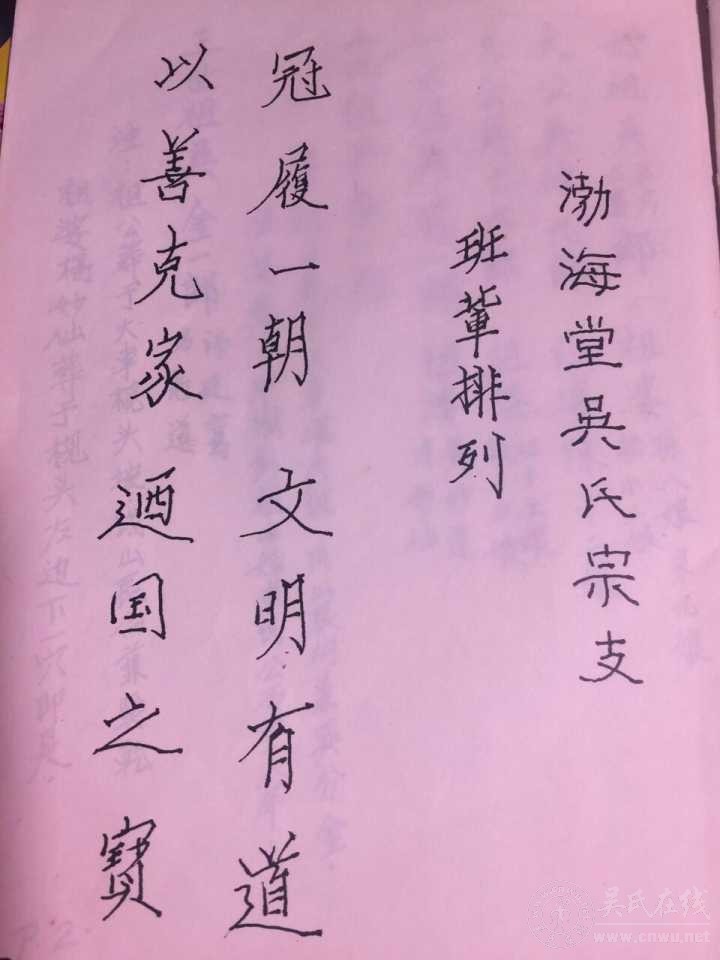 渤海堂吳氏宗支
班輩排列
冠履一朝 文明有道
以善克家 迺国之寶
吴氏在线
www.cnwu.net